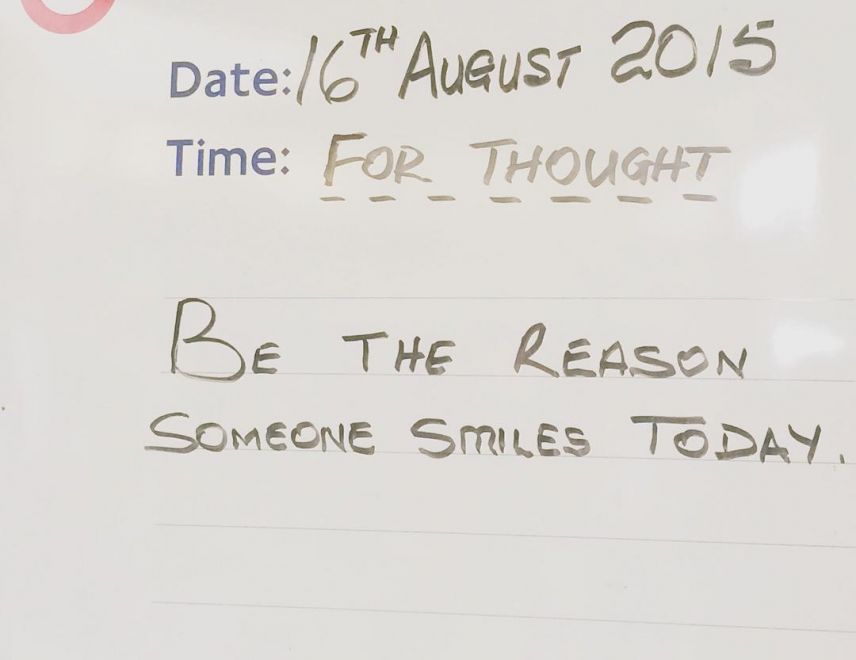 Date: 16TH AUGUST 2015
Time: FOR THOUGHT
BE THE REASON
SOMEONE SMILES TODAY.